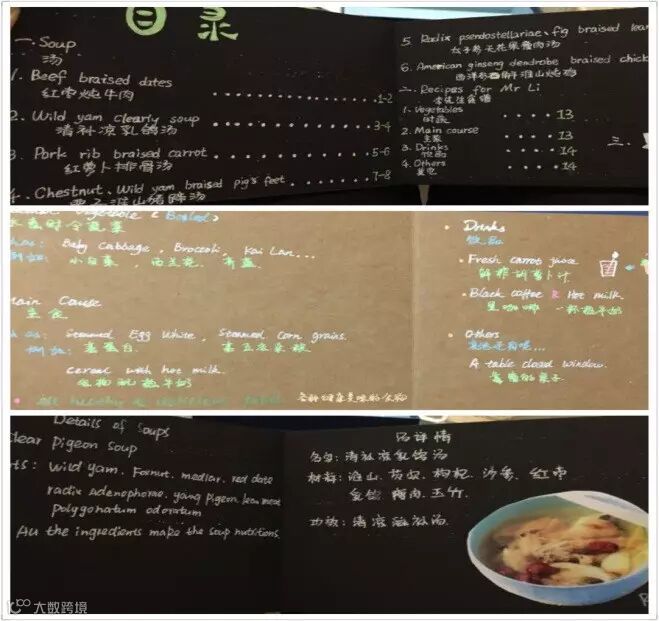 目录
一. Soup
汤
1. Beef braised dates
红枣炖牛肉 1-2
2. Wild yam clearly soup
清补凉乳鸽汤 3-4
3. Pork rib braised carrot
红萝卜排骨汤 5-6
4. Chestnut、Wild yam braised pig's feet 7-8
栗子淮山猪蹄汤
5. Radix pseudostellariae、fig braised lean
太子参无花果瘦肉汤
6. American ginseng dendrobe braised chick
淮山炖鸡
二. Recipes for Mr Li
李先生食谱
1. Vegetables 13
时蔬
2. Main course 13
主菜
3. Drinks 14
饮品
4. Others 14
其它
三.
Vegetable (Boiled)
水煮时令蔬菜
as: Baby Cabbage, Broccoli, Kai Lan...
例如: 小白菜, 西兰花, 芥蓝.
Main Course
主食
as: Steamed Egg White, Steamed Corn grains.
例如: 蒸蛋白. 蒸玉米粒
cereal with hot milk.
谷物配热牛奶
各种健康美味的食物
Drinks
饮品
Fresh carrot juice
鲜榨胡萝卜汁
Black coffee & Hot milk
黑咖啡 一杯热牛奶
Others
其他还有呢...
A table closed window.
靠窗的桌子
Details of soups
clear pigeon soup
ts: Wild yam. Foxnut. medlar. red date
radix adenophorae. yang pigeon. lean meat
polygonatum odoratum
All the ingredients make the soup nutritions.
品详情
名字: 清补凉乳鸽汤
材料: 淮山. 芡实. 枸杞. 沙参. 红枣
乳鸽 瘦肉. 玉竹.
功效: 清凉滋补汤.
大数跨境